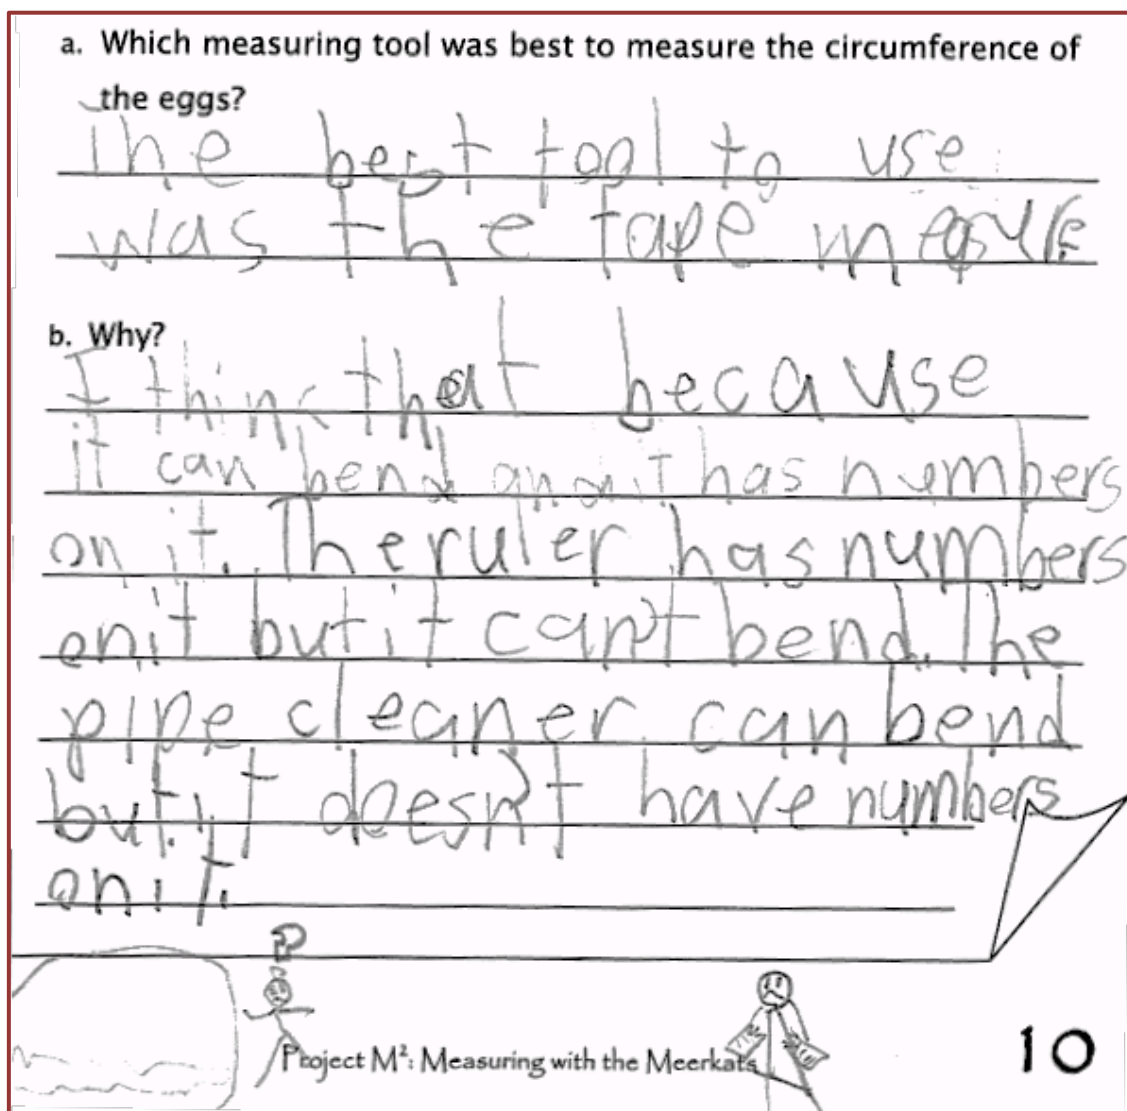 a. Which measuring tool was best to measure the circumference of
the eggs?
The best tool to use
was the tape measure
b. Why?
I think that because
it can bend and it has numbers
on it. The ruler has numbers
on it but it can't bend. The
pipe cleaner can bend
but it doesn't have numbers
on it.
?
Project M²: Measuring with the Meerkats
10